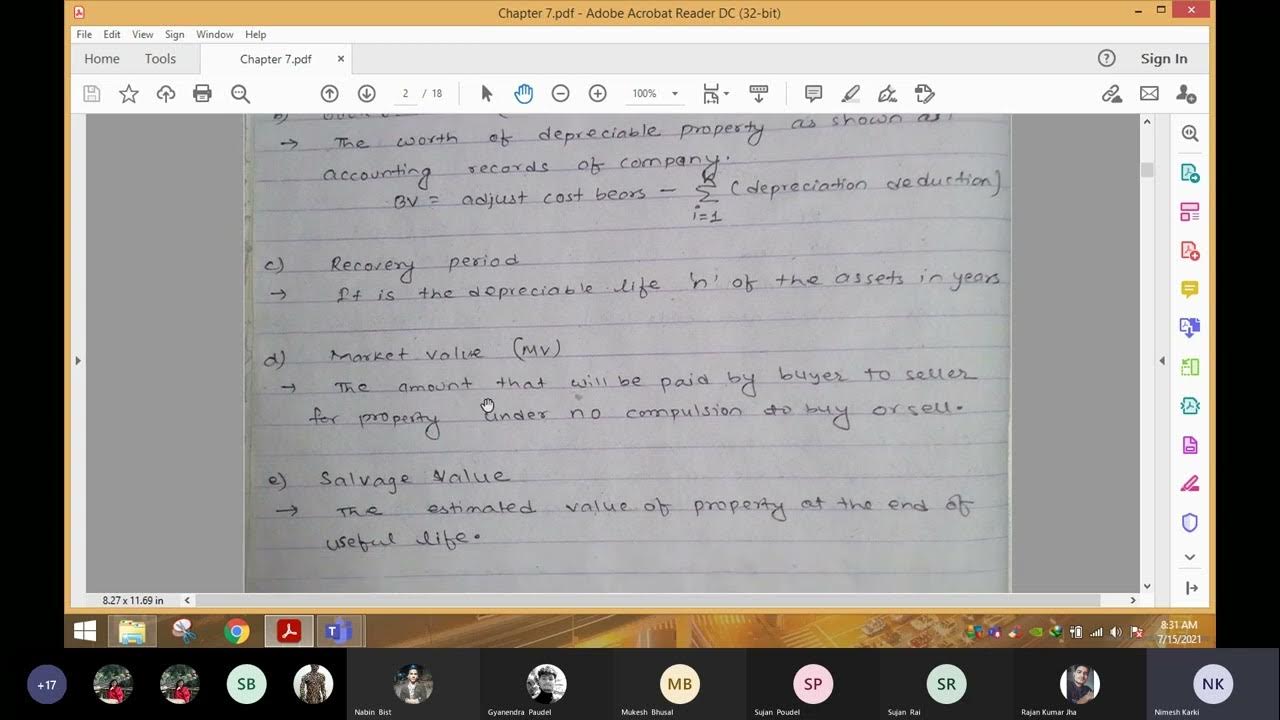 Chapter 7.pdf - Adobe Acrobat Reader DC (32-bit)
File Edit View Sign Window Help
Home Tools Chapter 7.pdf × Sign In
2 / 18 100%
b)
→ The worth of depreciable property as shown as
accounting records of company.
k
BV = adjust cost beors - Σ (depreciation deduction)
i=1
c) Recovery period
→ It is the depreciable life 'n' of the assets in years
d) Market value (MV)
→ The amount that will be paid by buyer to seller
for property under no compulsion to buy or sell.
e) Salvage value
→ The estimated value of property at the end of
useful life.
8.27 x 11.69 in
8:31 AM
7/15/2021
+17 SB MB SP SR NK
Nabin Bist Gyanendra Paudel Mukesh Bhusal Sujan Poudel Sujan Rai Rajan Kumar Jha Nimesh Karki